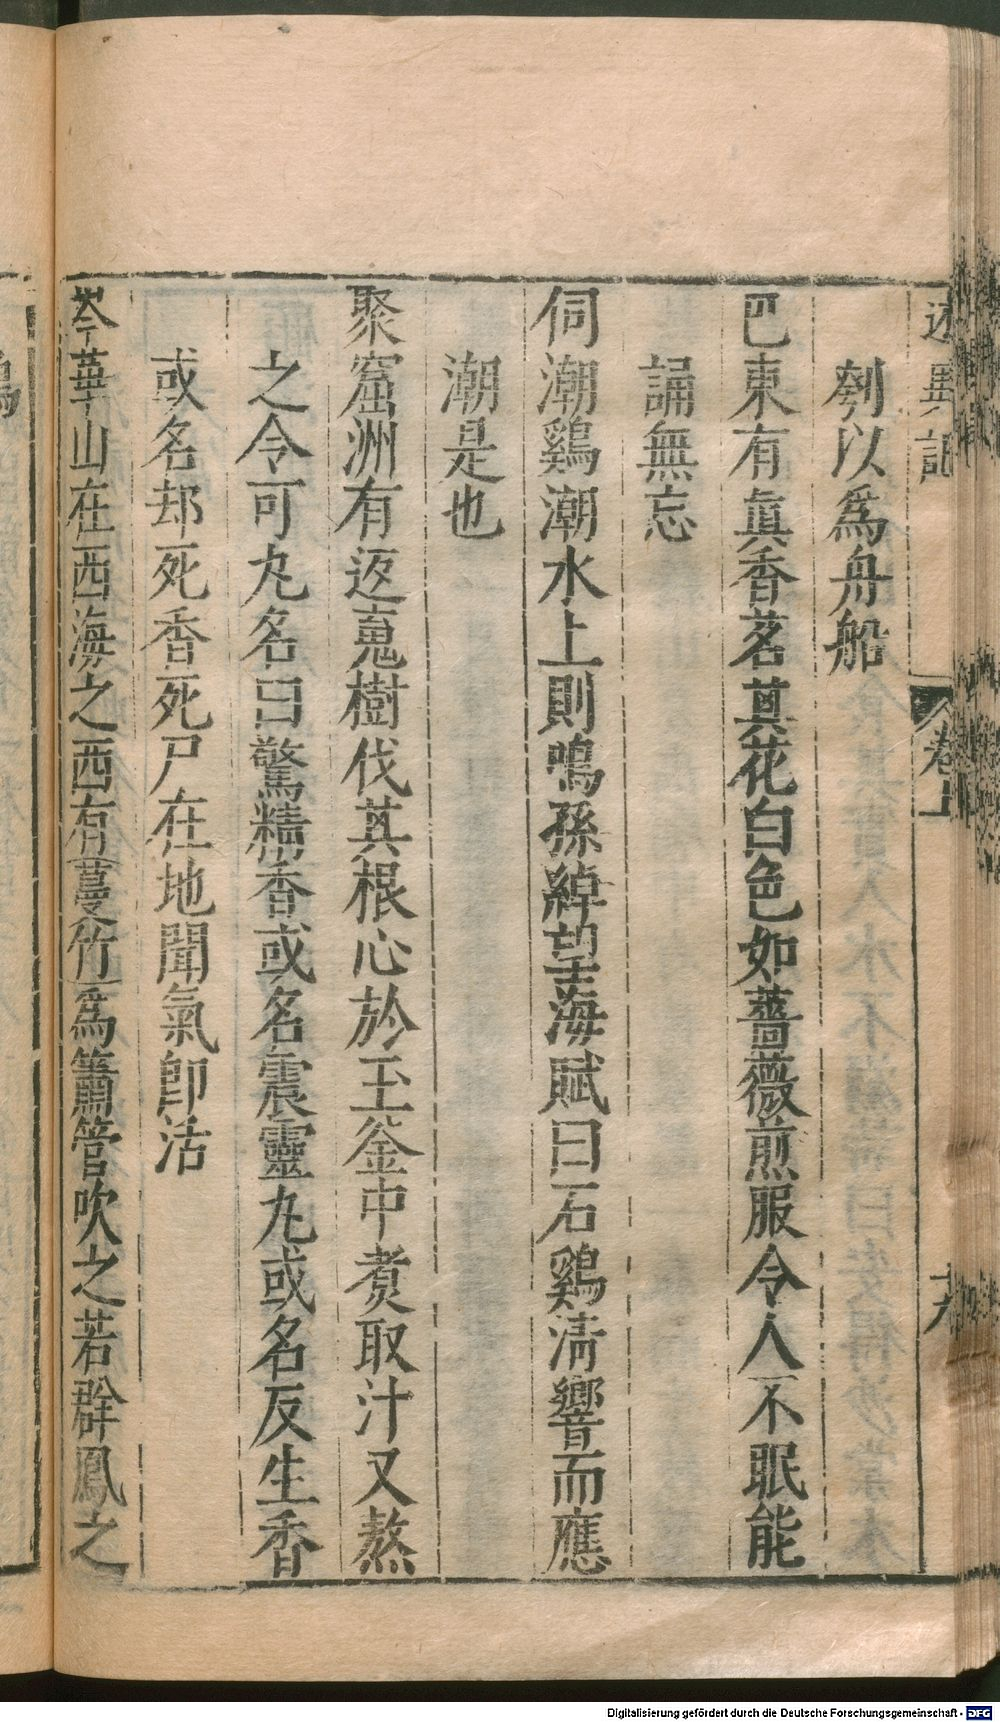 述異記
卷上
刳以爲舟船
巴東有眞香茗其花白色如薔薇煎服令人不眠能
誦無忘
伺潮鷄潮水上則鳴孫綽望海賦曰石鷄淸響而應
潮是也
聚窟洲有返䰟樹伐其根心於玉釜中煑取汁又熬
之令可丸名曰驚精香或名震靈丸或名反生香
或名却死香死尸在地聞氣卽活
岑華山在西海之西有蔓竹爲簫管吹之若群鳳之
Digitalisierung gefördert durch die Deutsche Forschungsgemeinschaft - DFG